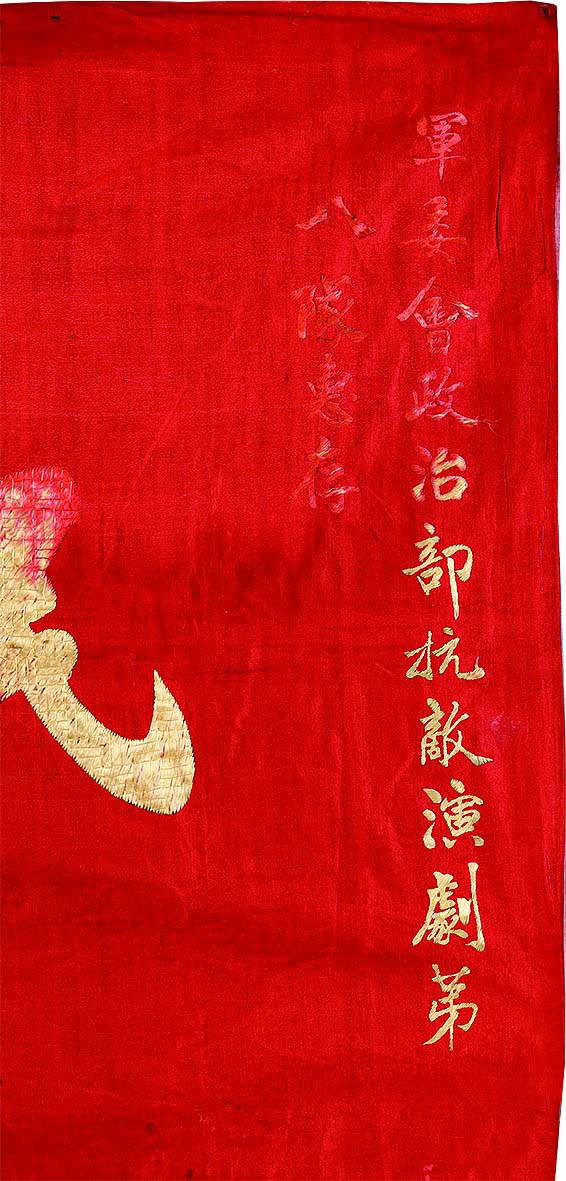 軍委會政治部抗敵演劇第
八隊惠存